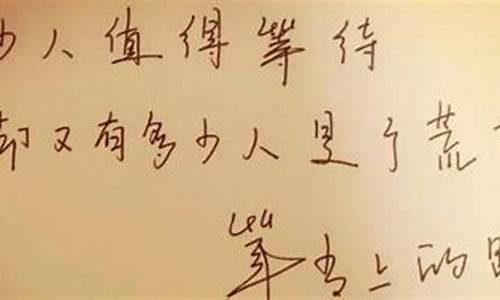 少人值得等待
却又有多少人是了荒
等 上的